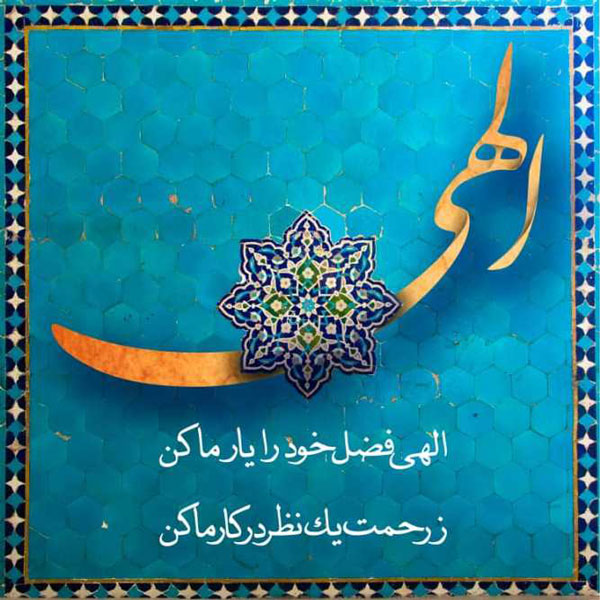 الهی
الهی فضل خود را یار ما کن
ز رحمت یك نظر در کار ما کن